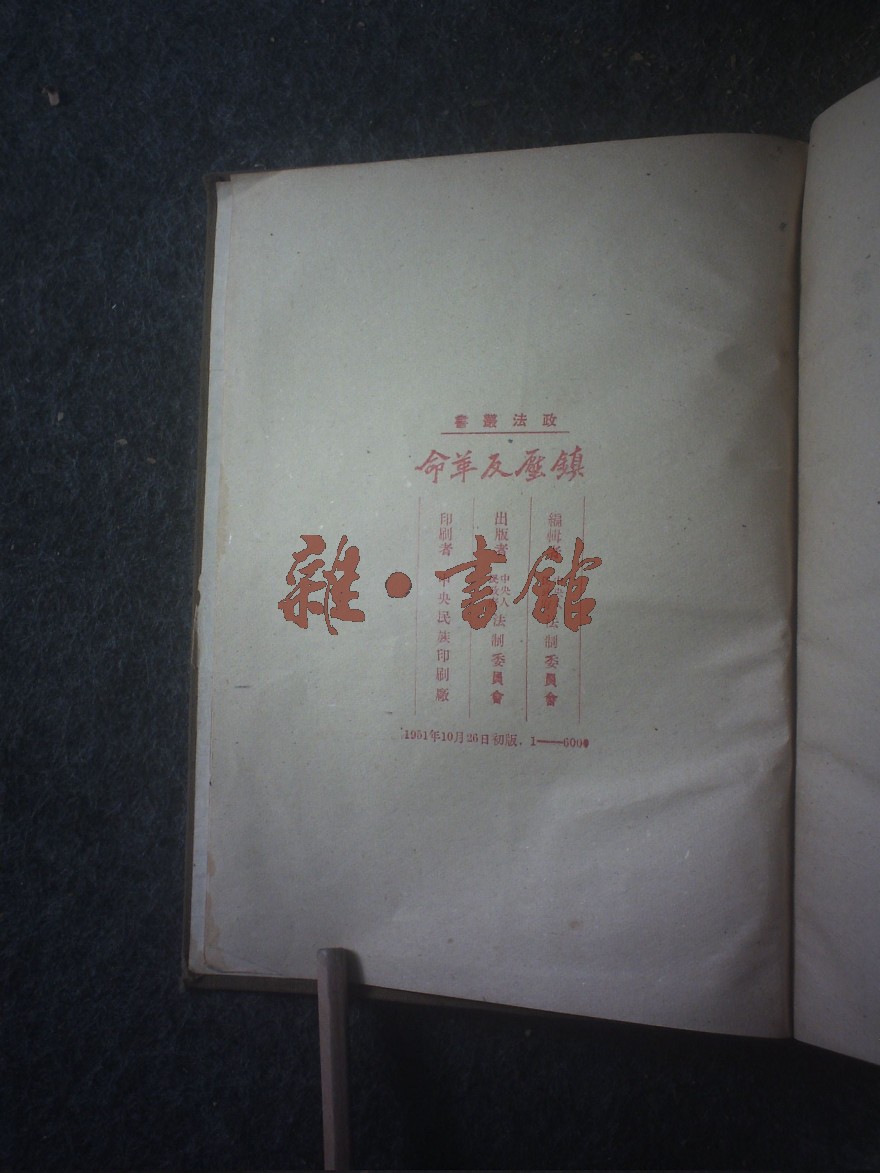 政法叢書
鎮壓反革命
編輯者 法制委員會
出版者 中央人民政府法制委員會
印刷者 中央民族印刷廠
1951年10月26日初版．1——6000
雜·書館